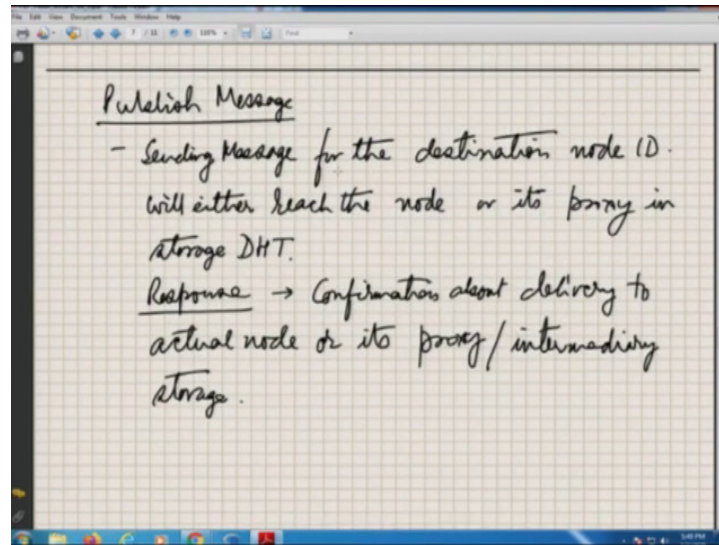 File Edit View Document Tools Window Help
7 / 11 110% Find
Publish Message
- Sending Message for the destination node ID.
will either reach the node or its proxy in
storage DHT.
Response → Confirmation about delivery to
actual node or its proxy/intermediary
storage.
5:48 PM